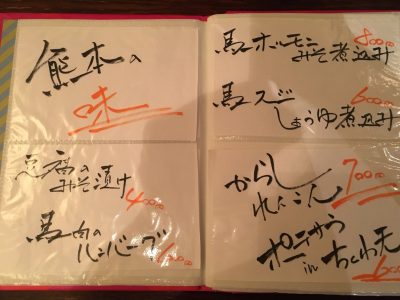 熊本の
味
豆腐の
みそ漬け
400円
馬肉の
ハンバーグ
馬ホルモン
みそ煮込み
800円
馬スジ
しょうゆ煮込み
600円
からし
れんこん
700円
ポテサラ
in ちくわ天